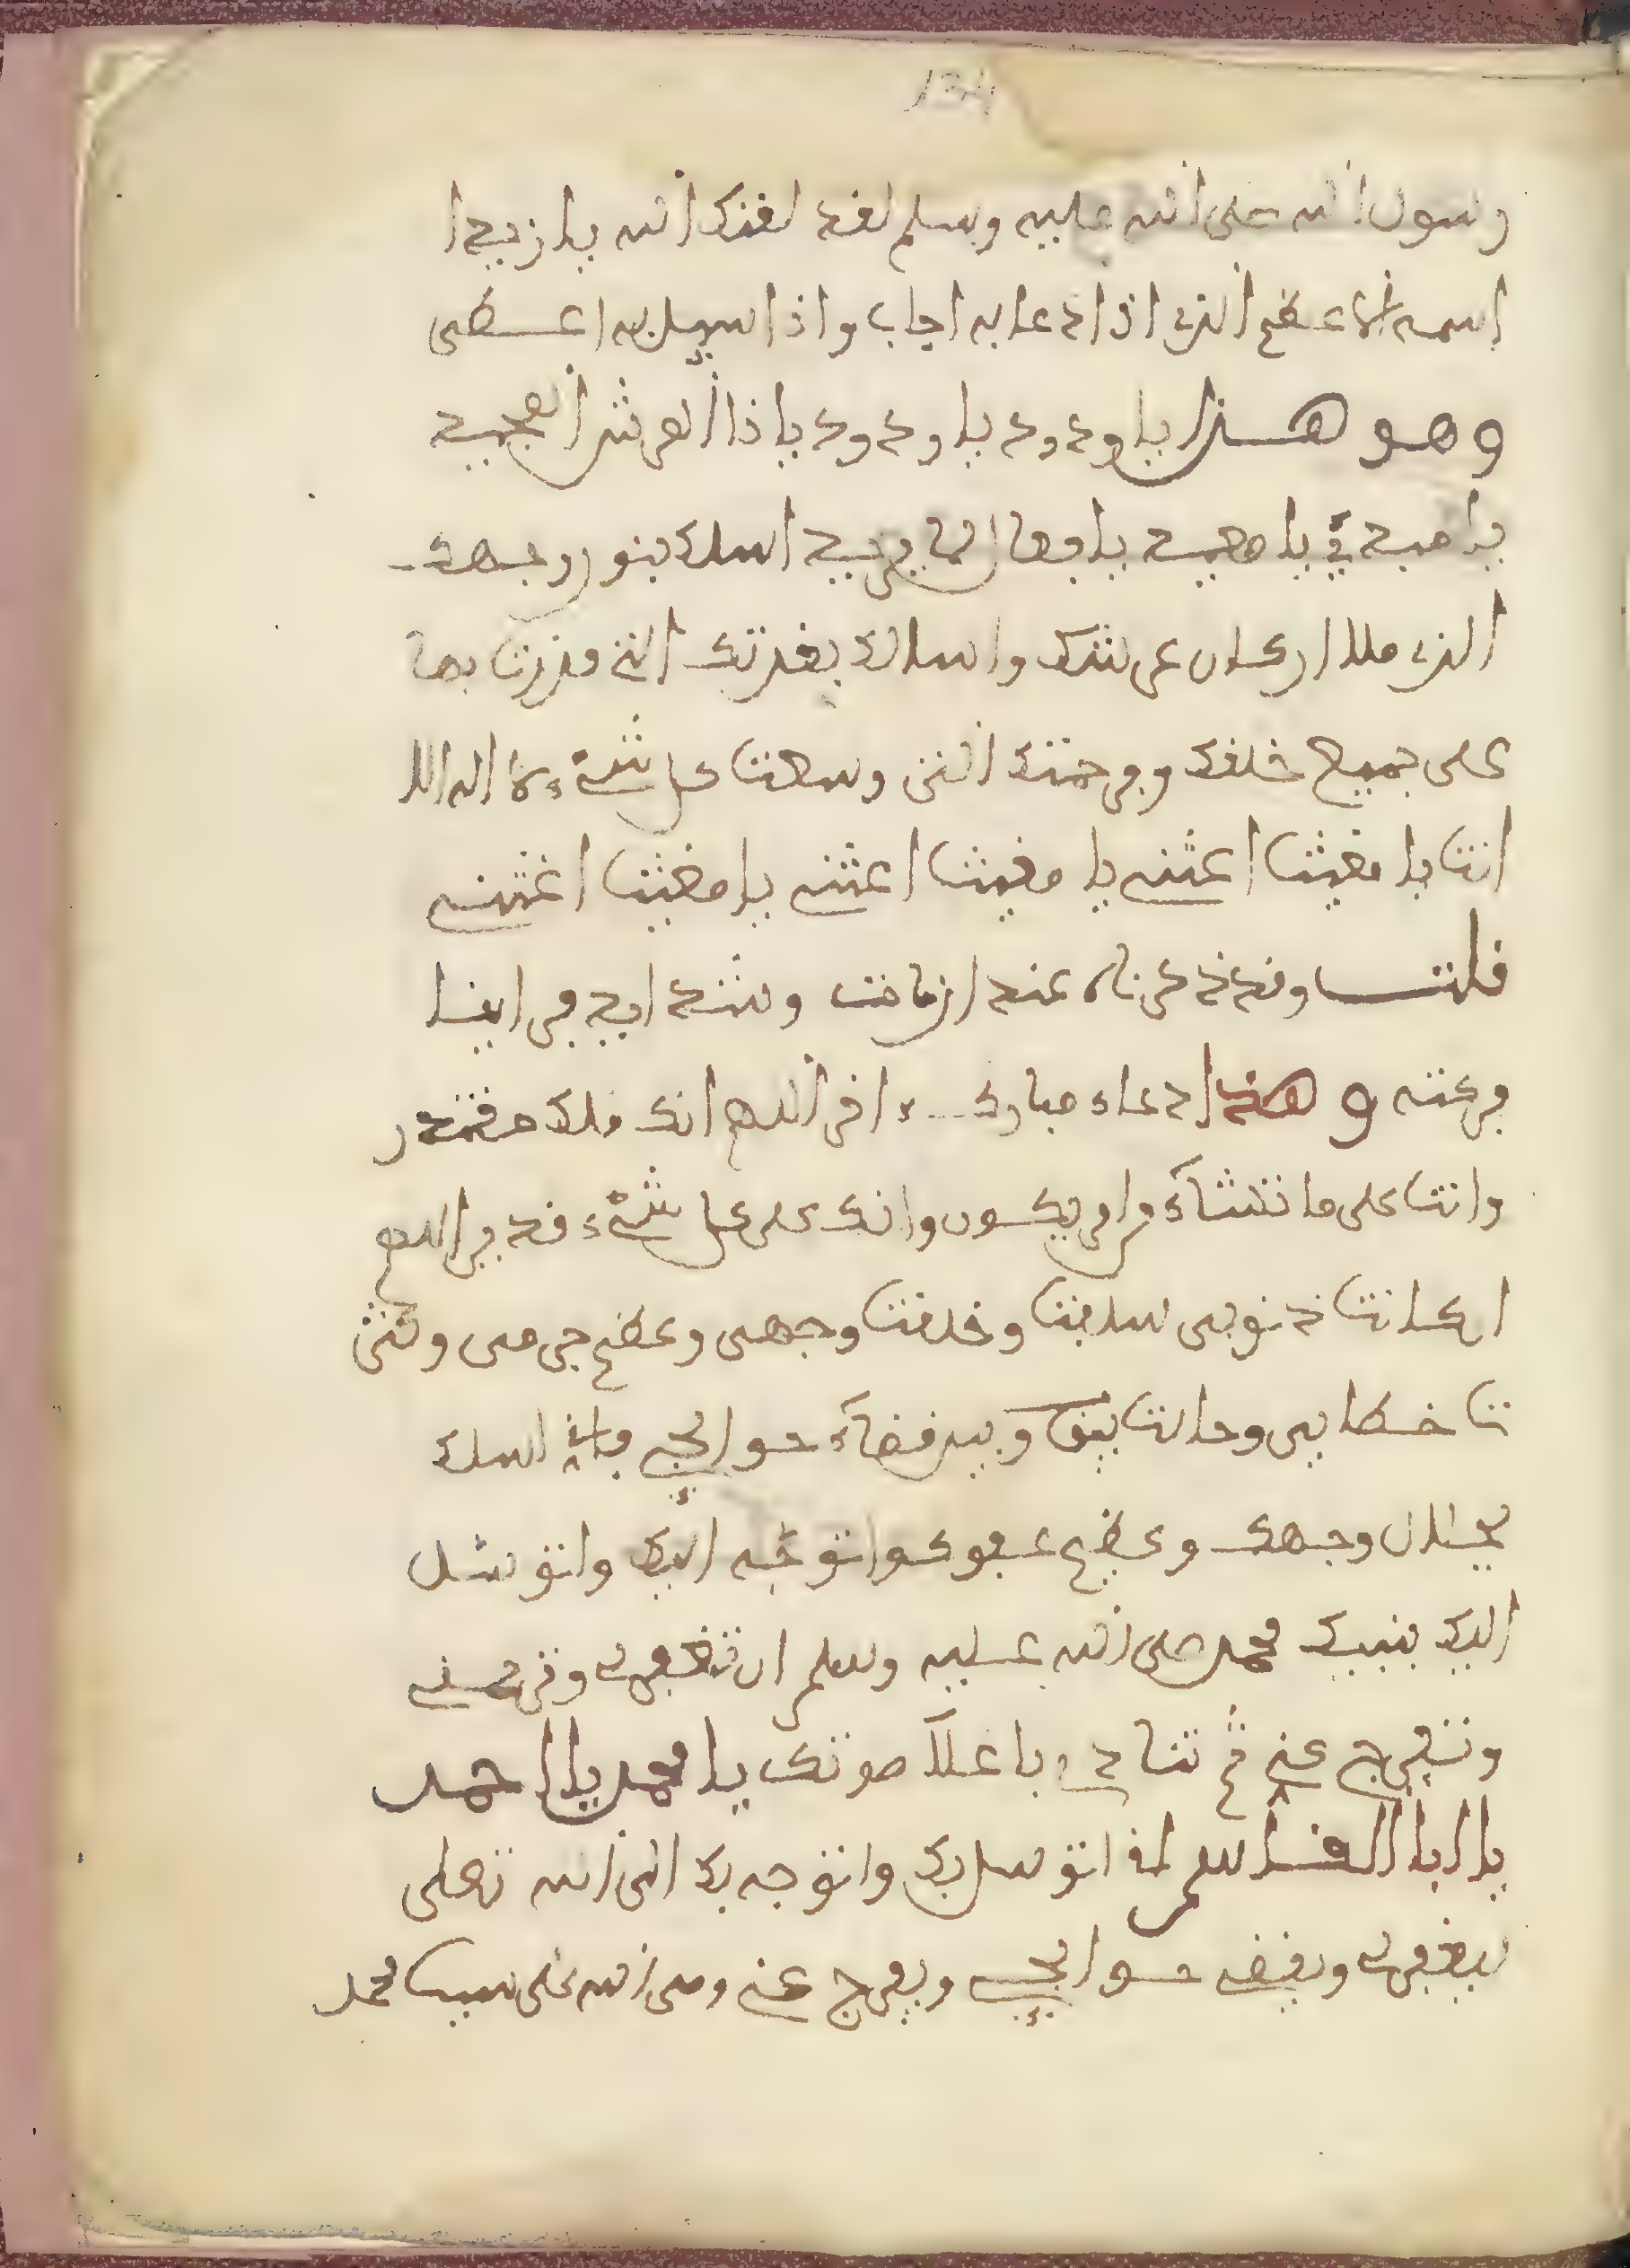 134
رسول الله صلى الله عليه وسلم لفد لفنك الله يا زيد ا
اسمه الاعظم الذى اذا دعا به اجاب واذا سيل به اعطى
وهو هذا يا ودود يا ودود يا ذا العرش المجيد
يا مبدئ يا معيد يا فعال لما يريد اسلك بنور وجهك
الذى ملا اركان عرشك واسالك بفدرتك التى فدرت بها
على جميع خلفك وبرحمتك التى وسعت كل شىء لا اله الا
انت يا مغيث اغثنى يا مغيث اغثنى يا مغيث اغثنى
فلت وفد ذكرناه عند ازمات وشدايد فراينا
بركته وهذا دعاء مبارك اخر اللهم انك ملك مفتدر
وانت على ما تشاء وامر يكون وانك على كل شىء فدير اللهم
ان كانت ذنوبى سلبت وخلفت وجهى وعظم جرمى وكثر
ت خطايى وحالت بينى وبين فضاء حوايجى فانى اسلك
بجلال وجهك وعظيم عبوك واتوجه اليك واتوسل
اليك بنبيك محمد صلى الله عليه وسلم ان تغبر لى وترحمنى
وتبرج عنى ثم تنادى باعلا صوتك يا محمد يا احمد
يا ابا الفاسم انى اتوسل بك واتوجه بك الى الله تعلى
ليغبر لى ويفضى حوايجى ويبرج عنى وصلى الله على سيدنا محمد